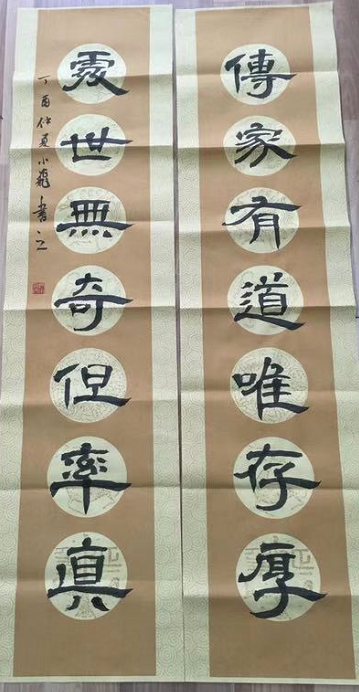 傳家有道唯存厚
處世無奇但率真
丁酉仲夏小龍書之